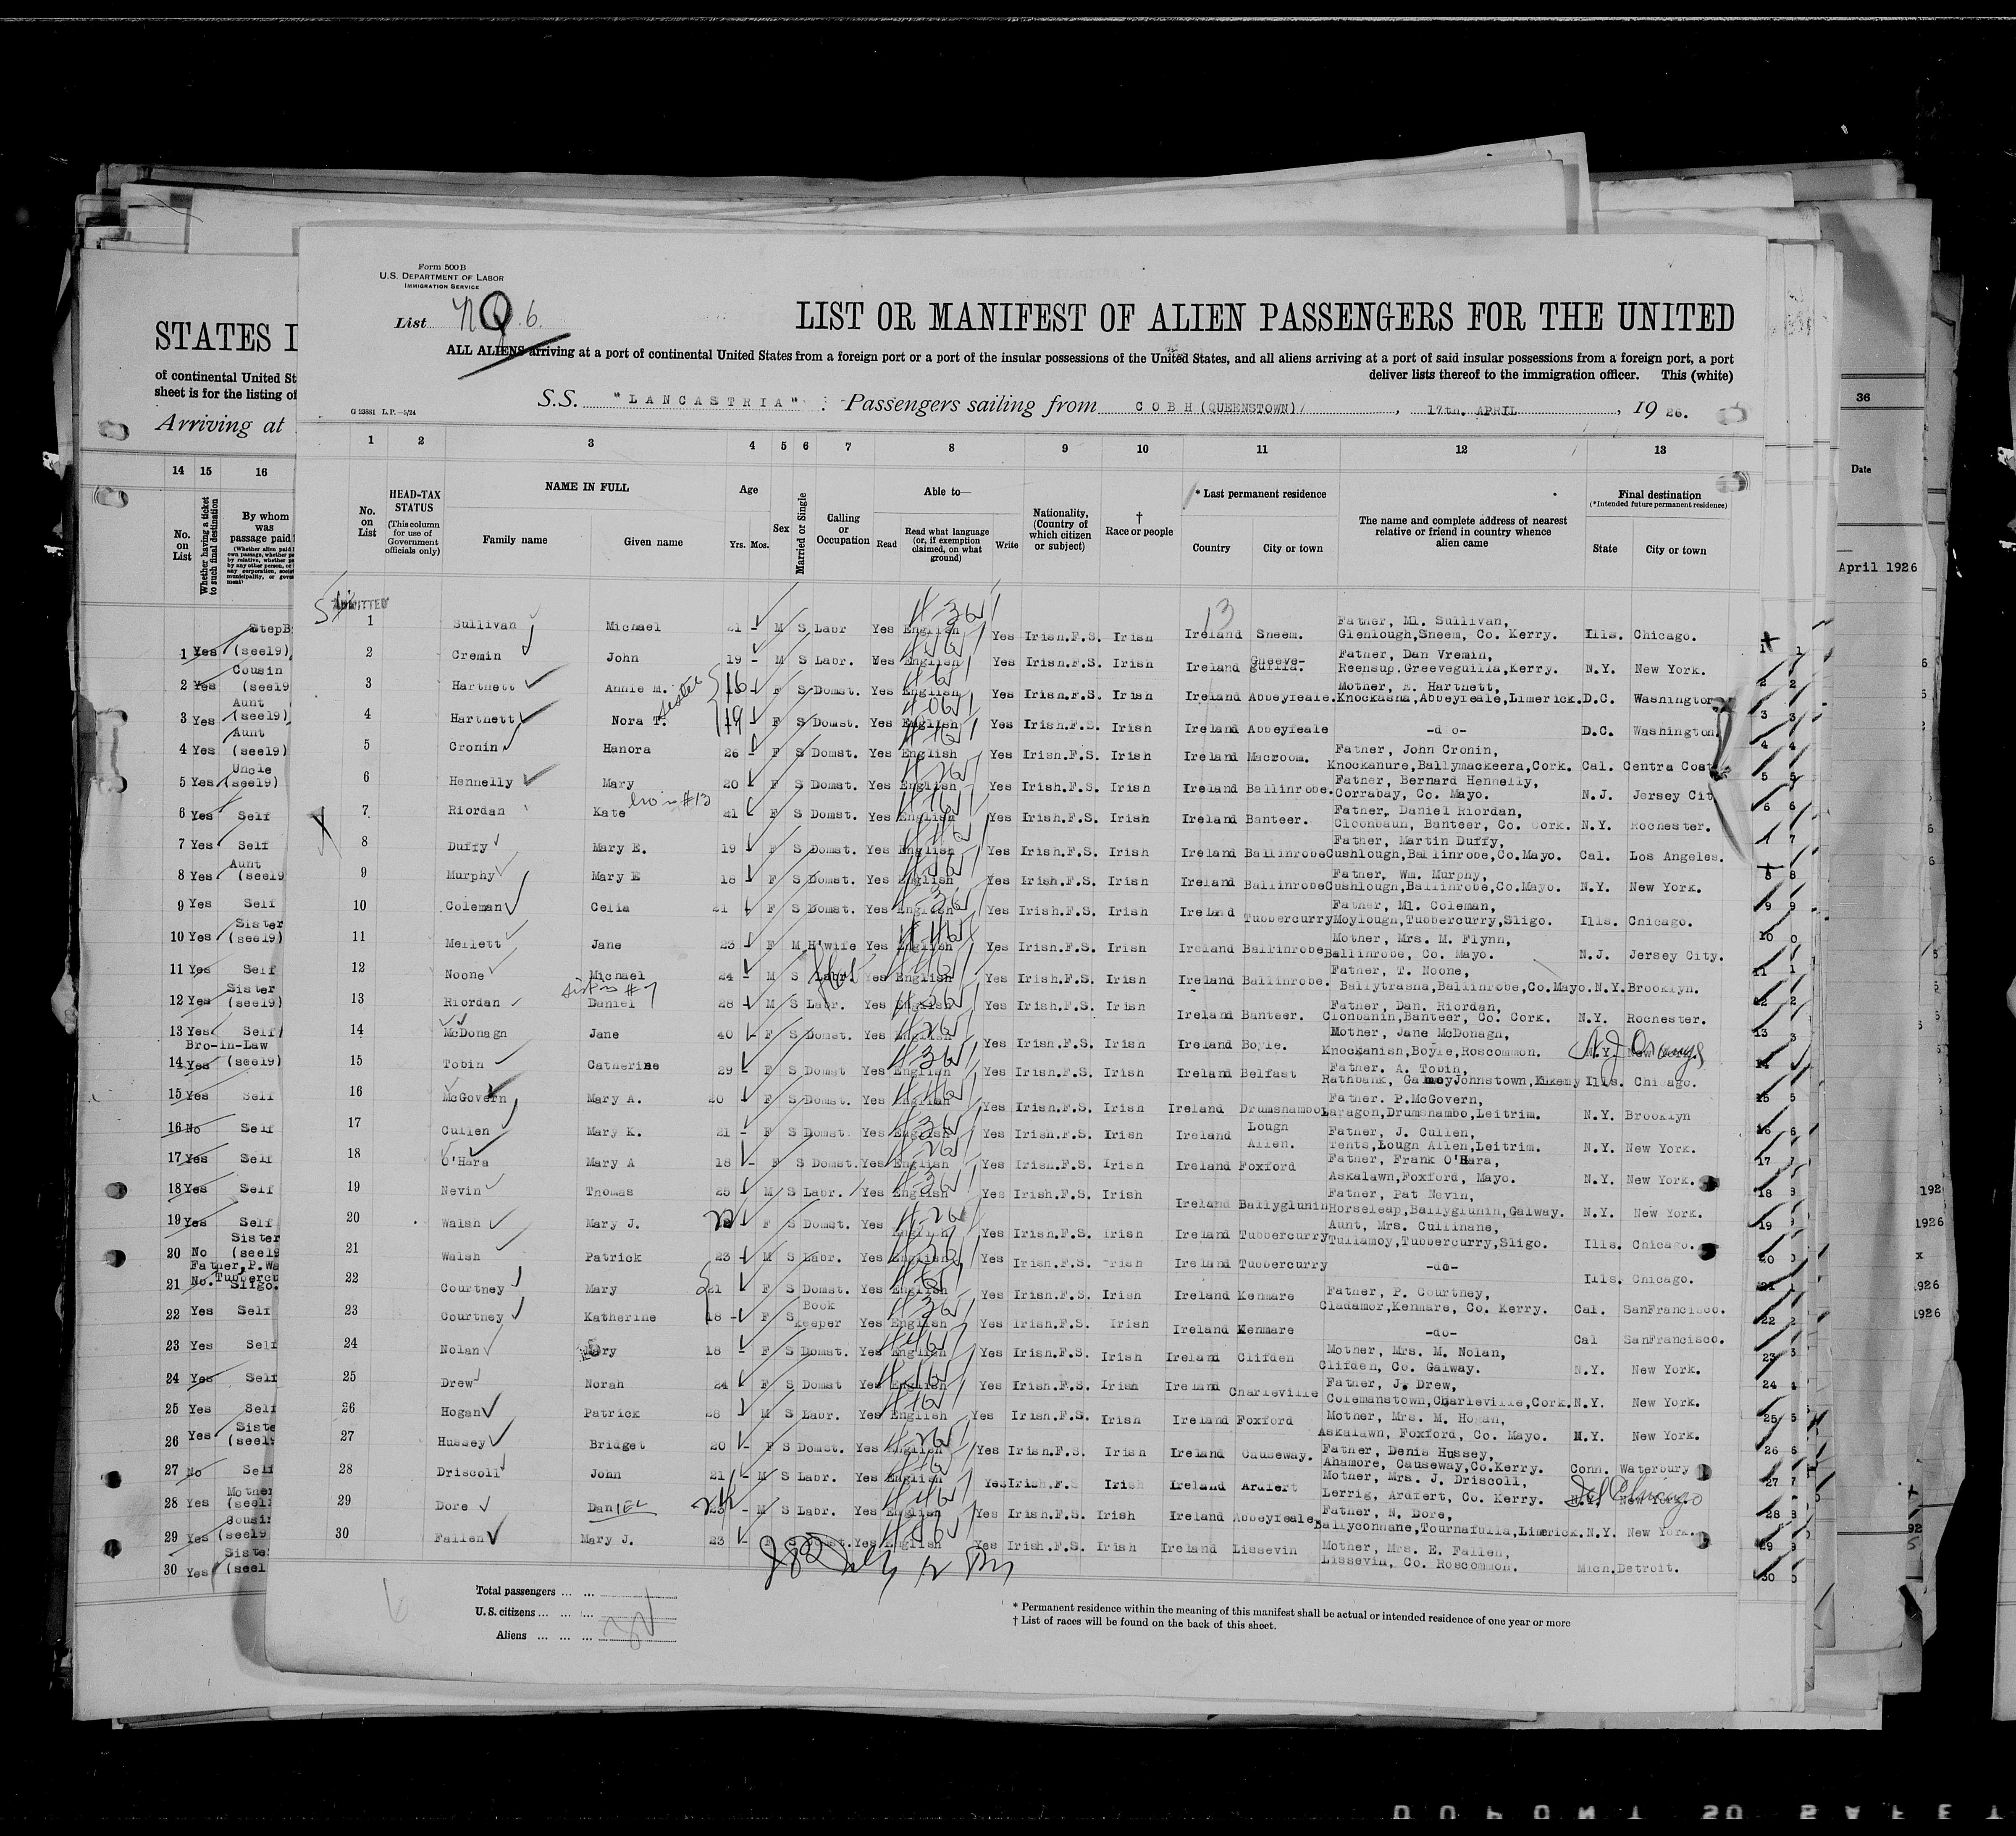 Form 500B
U.S. DEPARTMENT OF LABOR
IMMIGRATION SERVICE
List 6.
LIST OR MANIFEST OF ALIEN PASSENGERS FOR THE UNITED
ALL ALIENS arriving at a port of continental United States from a foreign port or a port of the insular possessions of the United States, and all aliens arriving at a port of said insular possessions from a foreign port, a port
deliver lists thereof to the immigration officer. This (white)
G 23881 L.P.—5/24
S.S. "LANCASTRIA" : Passengers sailing from COBH (QUEENSTOWN) , 17th. APRIL , 19 26.
1 2 3 4 5 6 7 8 9 10 11 12 13
No. on List
HEAD-TAX STATUS
(This column for use of Government officials only)
NAME IN FULL
Family name Given name
Age
Yrs. Mos.
Sex
Married or Single
Calling or Occupation
Able to—
Read
Read what language (or, if exemption claimed, on what ground)
Write
Nationality, (Country of which citizen or subject)
† Race or people
* Last permanent residence
Country City or town
The name and complete address of nearest relative or friend in country whence alien came
Final destination
(*Intended future permanent residence)
State City or town
ADMITTED
13
1 Sullivan Michael 21 - M S Labr Yes English Yes Irish.F.S. Irish Ireland Sneem. Father, Ml. Sullivan, Glenlough,Sneem, Co. Kerry. Ills. Chicago.
2 Cremin John 19 - M S Labr. Yes English Yes Irish.F.S. Irish Ireland Gneeve-guilla. Father, Dan Vremin, Reensup.Greeveguilla,Kerry. N.Y. New York.
3 Hartnett Annie M. sister 16 F S Domst. Yes English Yes Irish.F.S. Irish Ireland Abbeyfeale. Mother, E. Hartnett, Knockasna,Abbeyfeale,Limerick. D.C. Washington
4 Hartnett Nora T. 19 F S Domst. Yes English Yes Irish.F.S. Irish Ireland Abbeyfeale -do- D.C. Washington.
5 Cronin Hanora 26 - F S Domst. Yes English Yes Irish.F.S. Irish Ireland Macroom. Father, John Cronin, Knockanure,Ballymackeera,Cork. Cal. Centra Cost
6 Hennelly Mary 20 - F S Domst. Yes English Yes Irish.F.S. Irish Ireland Ballinrobe. Father, Bernard Hennelly, Corrabay, Co. Mayo. N.J. Jersey Cit
7 Riordan Kate bro is #13 21 F S Domst. Yes English Yes Irish.F.S. Irish Ireland Banteer. Father, Daniel Riordan, Cloonbaun, Banteer, Co. Cork. N.Y. Rochester.
8 Duffy Mary E. 19 F S Domst. Yes English Yes Irish.F.S. Irish Ireland Ballinrobe Father, Martin Duffy, Cushlough,Ballinrobe,Co.Mayo. Cal. Los Angeles.
9 Murphy Mary E 18 F S Domst. Yes English Yes Irish.F.S. Irish Ireland Ballinrobe Father, Wm. Murphy, Cushlough,Ballinrobe,Co.Mayo. N.Y. New York.
10 Coleman Celia 21 F S Domst. Yes English Yes Irish.F.S. Irish Ireland Tubbercurry Father, Ml. Coleman, Moylough,Tubbercurry,Sligo. Ills. Chicago.
11 Mellett Jane 23 F M H'wife Yes English Yes Irish.F.S. Irish Ireland Ballinrobe Mother, Mrs. M. Flynn, Ballinrobe, Co. Mayo. N.J. Jersey City.
12 Noone Michael 24 - M S Labr Yes English Yes Irish.F.S. Irish Ireland Ballinrobe. Father, T. Noone, Ballytrasna,Ballinrobe,Co.Mayo. N.Y. Brooklyn.
13 Riordan sister is #7 Daniel 28 - M S Labr. Yes English Yes Irish.F.S. Irish Ireland Banteer. Father, Dan. Riordan, Clonbanin,Banteer, Co. Cork. N.Y. Rochester.
14 McDonagn Jane 40 - F S Domst. Yes English Yes Irish.F.S. Irish Ireland Boyle. Mother, Jane McDonagh, Knockanish,Boyle,Roscommon. N.Y. New York. N.J. Orange
15 Tobin Catherine 29 - F S Domst Yes English Yes Irish.F.S. Irish Ireland Belfast Father. A. Tobin, Rathbank, Galmoy Johnstown,Kikenny Ills. Chicago.
16 McGovern Mary A. 20 F S Domst. Yes English Yes Irish.F.S. Irish Ireland Drumshambo Father. P.McGovern, Laragon,Drumshambo,Leitrim. N.Y. Brooklyn
17 Cullen Mary K. 21 - F S Domst. Yes English Yes Irish.F.S. Irish Ireland Lough Allen. Father, J. Cullen, Tents,Lough Allen,Leitrim. N.Y. New York.
18 O'Hara Mary A 18 - F S Domst. Yes English Yes Irish.F.S. Irish Ireland Foxford Father, Frank O'Hara, Askalawn,Foxford, Mayo. N.Y. New York.
19 Nevin Thomas 25 M S Labr. Yes English Yes Irish.F.S. Irish Ireland Ballyglunin Father, Pat Nevin, Horseleap,Ballyglunin,Galway. N.Y. New York.
20 Walsh Mary J. F S Domst. Yes English Yes Irish.F.S. Irish Ireland Tubbercurry Aunt, Mrs. Cullinane, Tullamoy,Tubbercurry,Sligo. Ills. Chicago.
21 Walsh Patrick 23 M S Labr. Yes English Yes Irish.F.S. Irish Ireland Tubbercurry -do- Ills. Chicago.
22 Courtney Mary 21 F S Domst. Yes English Yes Irish.F.S. Irish Ireland Kenmare Father, P. Courtney, Cladamor,Kenmare, Co. Kerry. Cal. SanFrancisco.
23 Courtney Katherine 18 - F S Book keeper Yes English Yes Irish.F.S. Irish Ireland Kenmare -do- Cal SanFrancisco.
24 Nolan Mary 18 - F S Domst. Yes English Yes Irish.F.S. Irish Ireland Clifden Mother, Mrs. M. Nolan, Clifden, Co. Galway. N.Y. New York.
25 Drew Norah 24 F S Domst Yes English Yes Irish.F.S. Irish Ireland Charleville Father, J. Drew, Colemanstown,Charleville,Cork. N.Y. New York.
26 Hogan Patrick 28 M S Labr. Yes English Yes Irish.F.S. Irish Ireland Foxford Mother, Mrs. M. Hogan, Askalawn, Foxford, Co. Mayo. N.Y. New York.
27 Hussey Bridget 20 - F S Domst. Yes English Yes Irish.F.S. Irish Ireland Causeway. Father, Denis Hussey, Ahamore, Causeway,Co.Kerry. Conn. Waterbury
28 Driscoll John 21 - M S Labr. Yes English Yes Irish.F.S Irish Ireland Ardfert Mother, Mrs. J. Driscoll, Lerrig, Ardfert, Co. Kerry. N.Y. New York. Ill Chicago
29 Dore DanIEL 23 - M S Labr. Yes English Yes Irish.F.S. Irish Ireland Abbeyfeale Father, N. Dore, Ballyconnane,Tournafulla,Limerick. N.Y. New York.
30 Fallen Mary J. 23 - F S Domst. Yes English Yes Irish.F.S. Irish Ireland Lissevin Mother, Mrs. E. Fallen, Lissevin, Co. Roscommon. Mich. Detroit.
Total passengers ... ...
U.S. citizens ... ... ...
Aliens ... ... ...
* Permanent residence within the meaning of this manifest shall be actual or intended residence of one year or more
† List of races will be found on the back of this sheet.
STATES I
of continental United St
sheet is for the listing of
Arriving at
14 15 16
No. on List
Whether having a ticket to such final destination
By whom was passage paid
1 Yes StepB (see19)
2 Yes Cousin (see19
3 Yes Aunt (see19)
4 Yes Aunt (see19)
5 Yes Uncle (see19)
6 Yes Self
7 Yes Self
8 Yes Aunt (see19
9 Yes Self
10 Yes Sister (see19)
11 Yes Self
12 Yes Sister (see19)
13 Yes Self
14 Yes Bro-in-Law (see19)
15 Yes Self
16 No Self
17 Yes Self
18 Yes Self
19 Yes Self
20 No Sister (see19
21 No. Father,P.Wa Tubbercu Sligo.
22 Yes Self
23 Yes Self
24 Yes Self
25 Yes Self
26 Yes Siste (see19
27 No Self
28 Yes Mother (see1
29 Yes Cousi (see19
30 Yes Siste (see1
36
Date
April 1926
192
1926
x
1926
1926
DUPONT SAFET